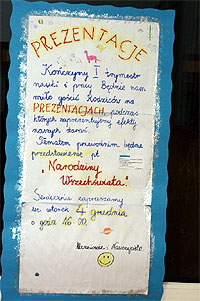 PREZENTACJE
Kończymy I trymestr
nauki i pracy. Będzie nam
miło gościć Rodziców na
PREZENTACJACH, podczas
których zaprezentujemy efekty
naszych starań.
Tematem przewodnim będzie
przedstawienie pt.
"Narodziny
Wszechświata".
Serdecznie zapraszamy
we wtorek 4 grudnia
o godz. 16.00
Uczniowie i Nauczyciele